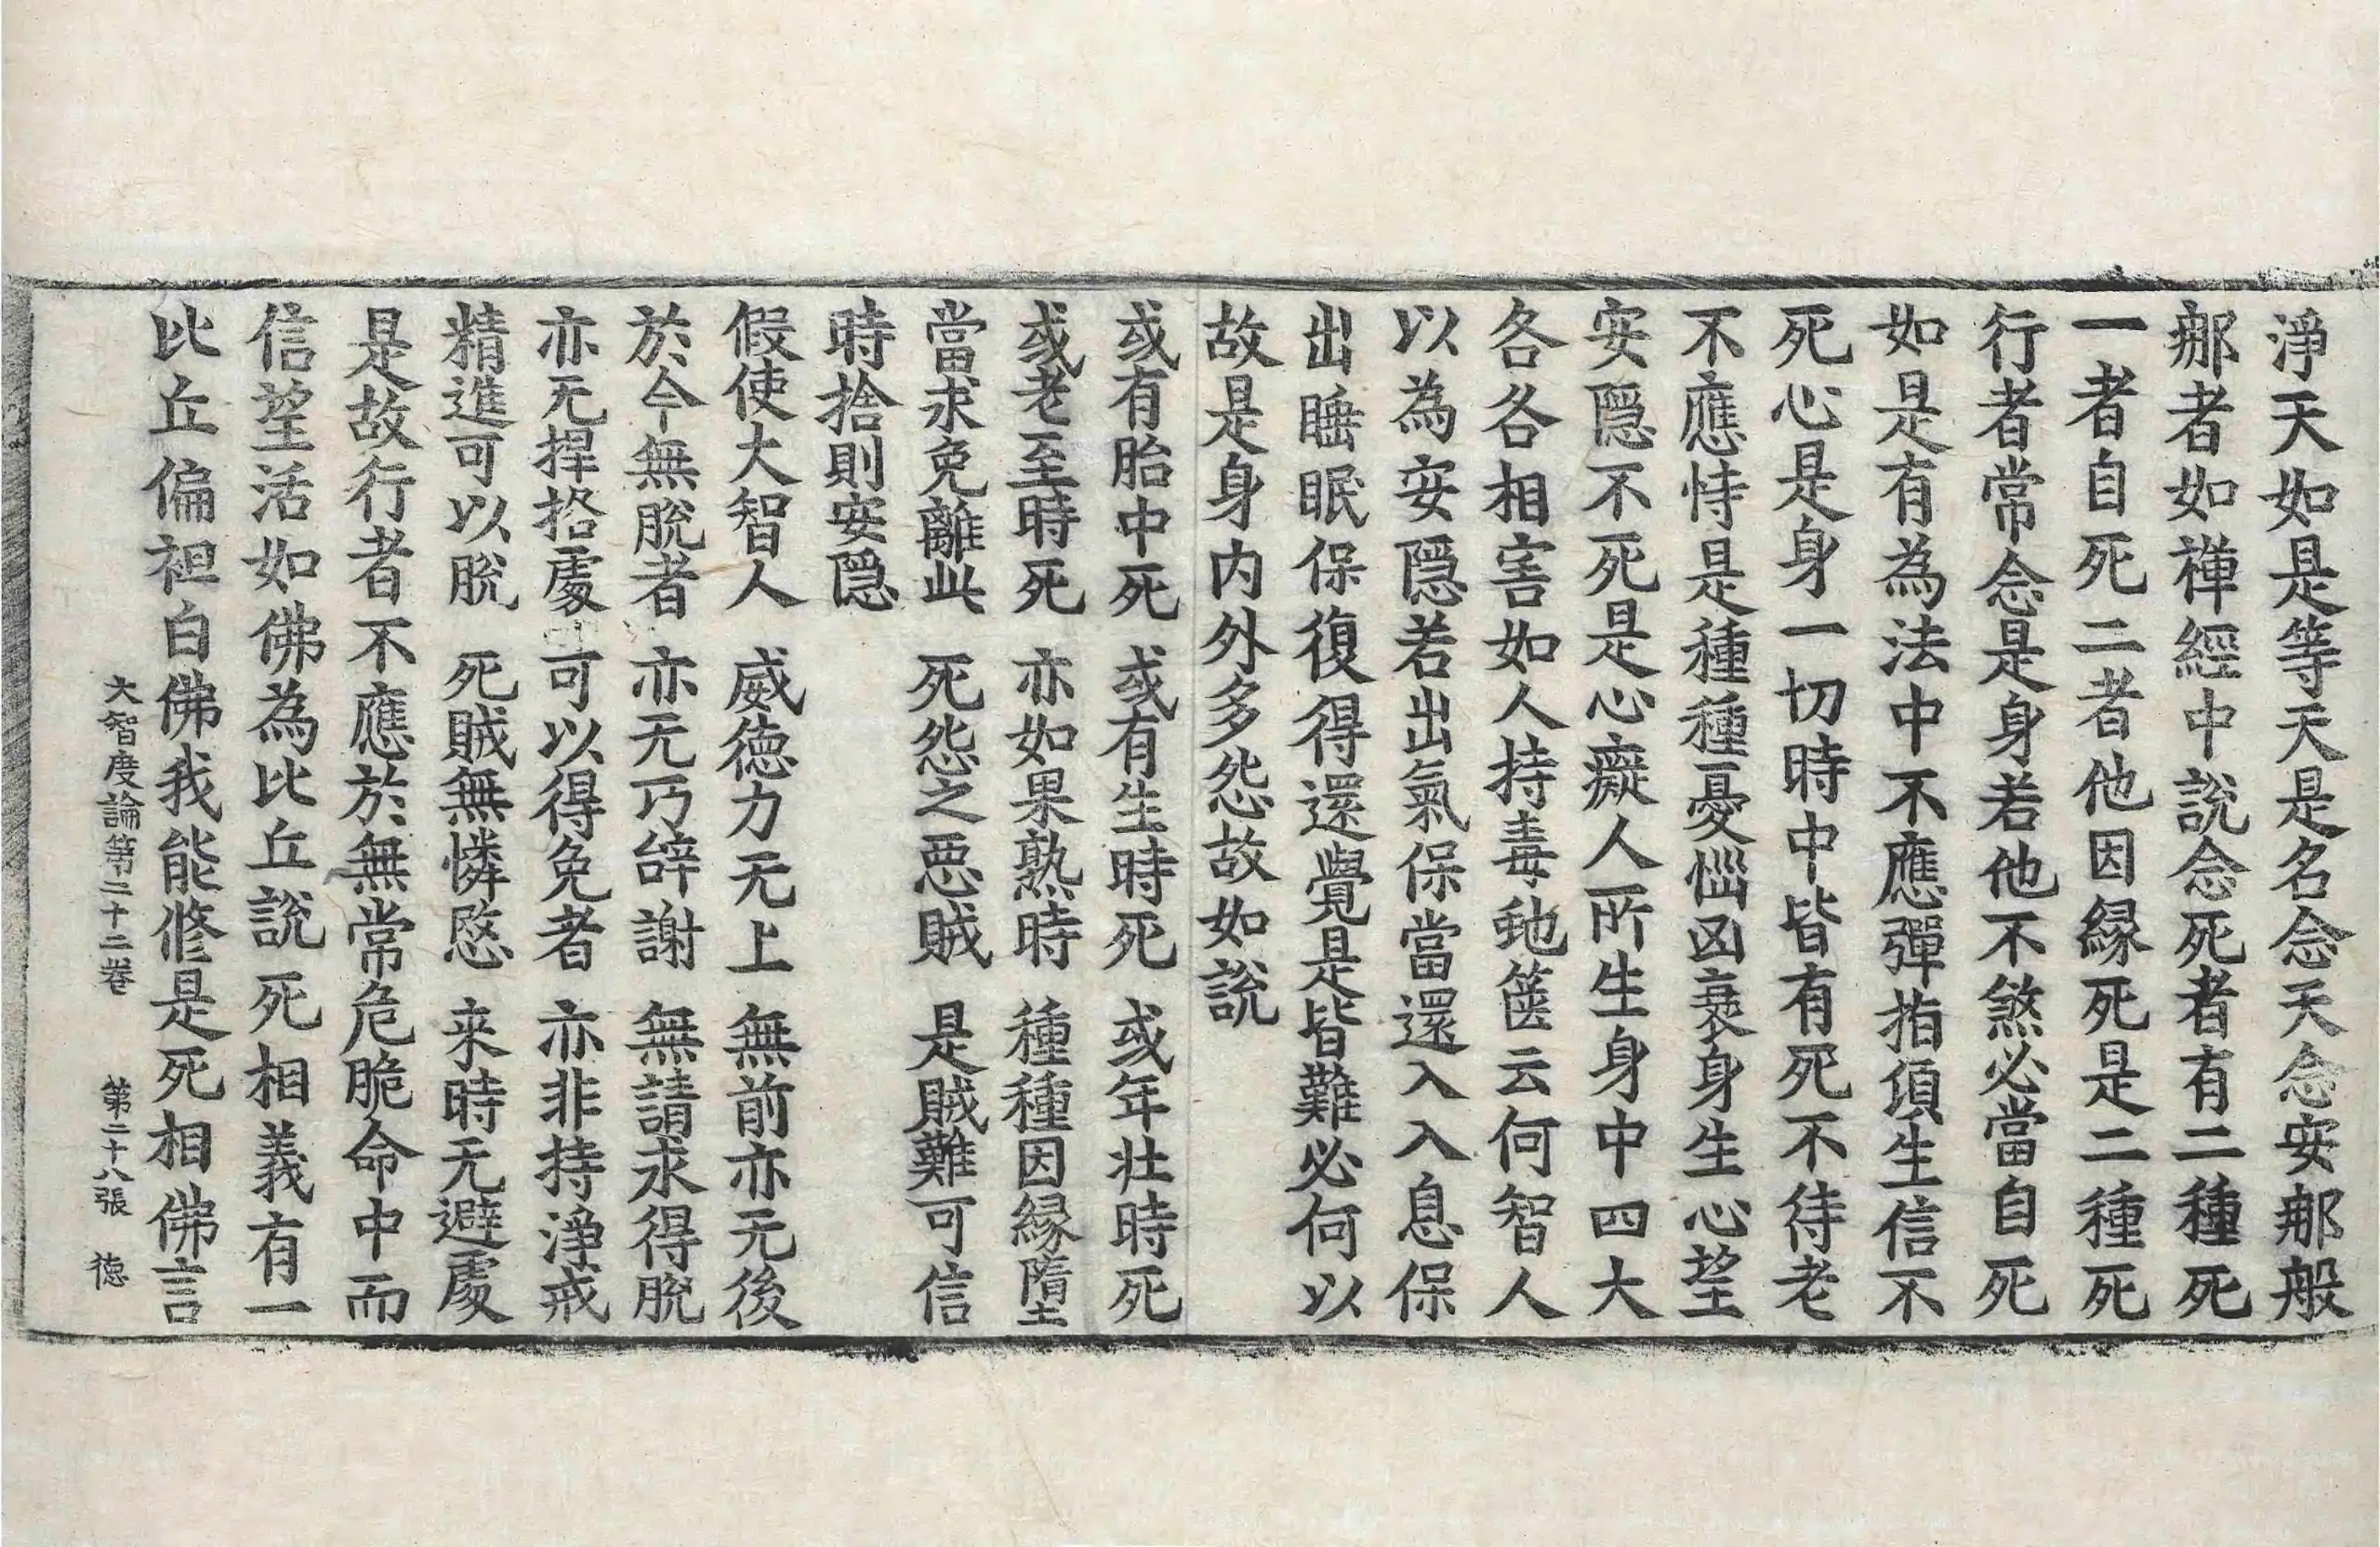 淨天如是等天是名念天念安那般
那者如禪經中說念死者有二種死
一者自死二者他因緣死是二種死
行者常念是身若他不煞必當自死
如是有為法中不應彈指頃生信不
死心是身一切時中皆有死不待老
不應恃是種種憂惱凶衰身生心望
安隱不死是心癡人所生身中四大
各各相害如人持毒虵篋云何智人
以為安隱若出氣保當還入入息保
出睡眠保復得還覺是皆難必何以
故是身內外多怨故如說
或有胎中死 或有生時死 或年壯時死
或老至時死 亦如果熟時 種種因緣墮
當求免離此 死怨之惡賊 是賊難可信
時捨則安隱
假使大智人 威德力无上 無前亦无後
於今無脫者 亦无巧辝謝 無請求得脫
亦无捍挌處 可以得免者 亦非持淨戒
精進可以脫 死賊無憐愍 来時无避處
是故行者不應於無常危脆命中而
信望活如佛為比丘說死相義有一
比丘偏袒白佛我能修是死相佛言
大智度論第二十二卷 第二十八張 德